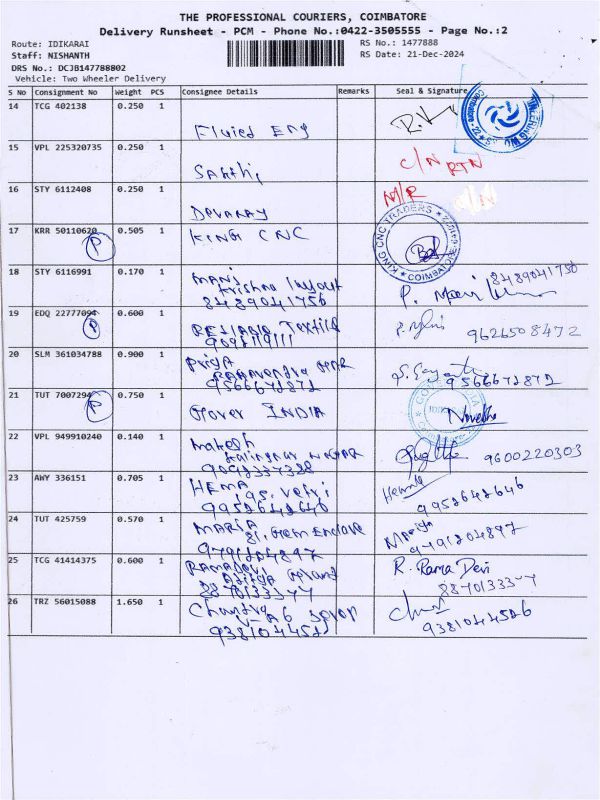 THE PROFESSIONAL COURIERS, COIMBATORE
Delivery Runsheet - PCM - Phone No.:0422-3505555 - Page No.:2
Route: IDIKARAI
RS No.: 1477888
Staff: NISHANTH
RS Date: 21-Dec-2024
DRS No.: DCJB147788802
Vehicle: Two Wheeler Delivery
S No Consignment No Weight PCS Consignee Details Remarks Seal & Signature
14 TCG 402138 0.250 1
Fluied Eng
R.K
15 VPL 225320735 0.250 1
Sakthi
C/N RTN
16 STY 6112408 0.250 1
Devaraj
N/R
17 KRR 50110620 0.505 1
P
KING CNC
KING CNC TRADERS
COIMBATORE
18 STY 6116991 0.170 1
Mani
Krishna layout
8489041756
8489041756
19 EDQ 22777094 0.600 1
P
Textile
9626508472
20 SLM 361034788 0.900 1
Priya
9566671872
9566671872
21 TUT 7007294 0.750 1
P
INDIA
22 VPL 949910240 0.140 1
Makesh
Nagar
9600220303
23 AWY 336151 0.705 1
HEMA
195, Vetri
9952642646
Hema
9952642646
24 TUT 425759 0.570 1
MARIA
81, Gem Enclave
9791204897
Maria
9791204897
25 TCG 41414375 0.600 1
RAMADEVI
8870133377
R. Rama Devi
8870133377
26 TRZ 56015088 1.650 1
Chandra
9381044526